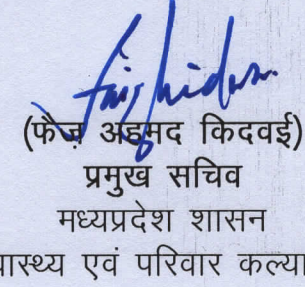 (फैज़ अहमद किदवई)
प्रमुख सचिव
मध्यप्रदेश शासन
एवं परिवार